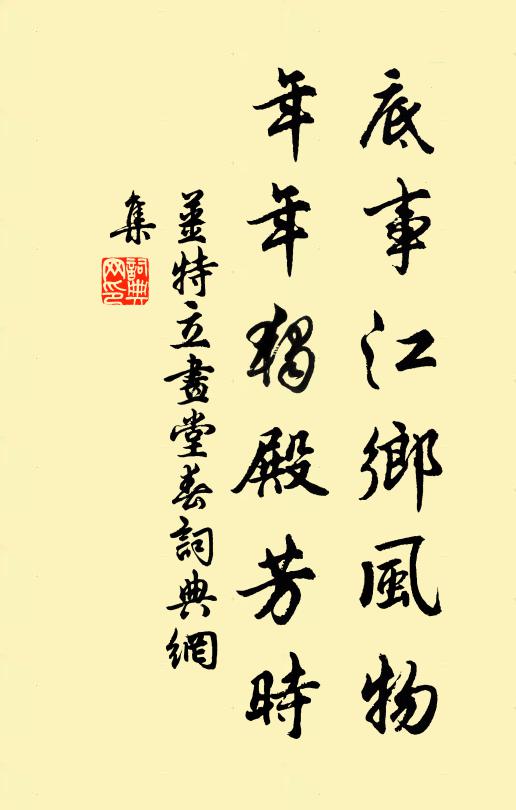 底事江鄉風物
年年獨殿芳時
姜特立畫堂春詞典網
集
詞典
网印